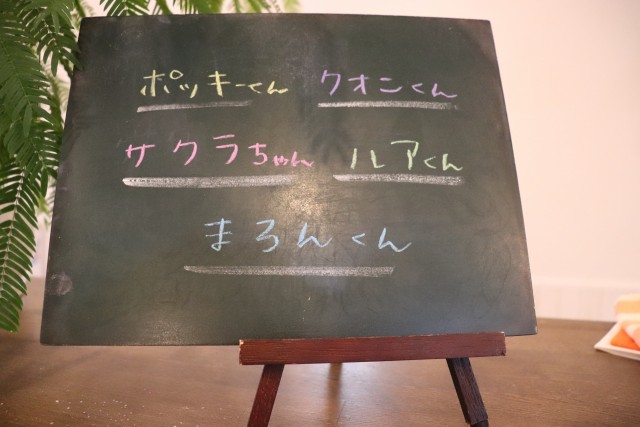 ポッキーくん クオンくん
サクラちゃん ルアくん
まろんくん